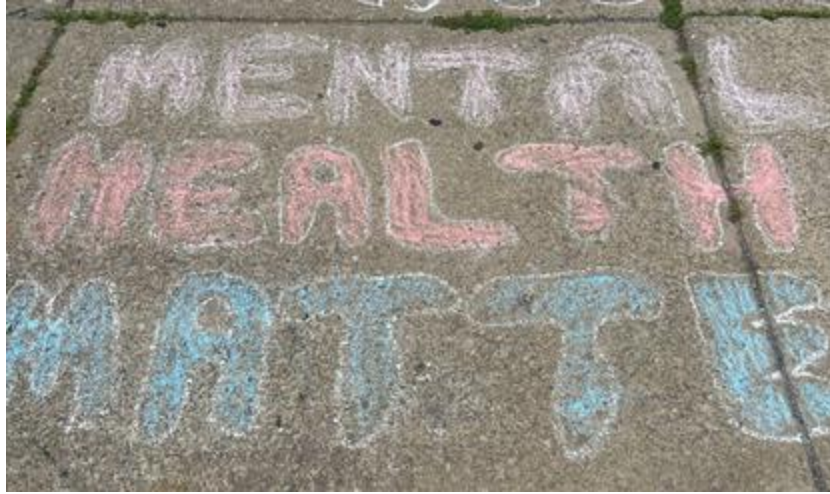 MENTAL
HEALTH
MATTE